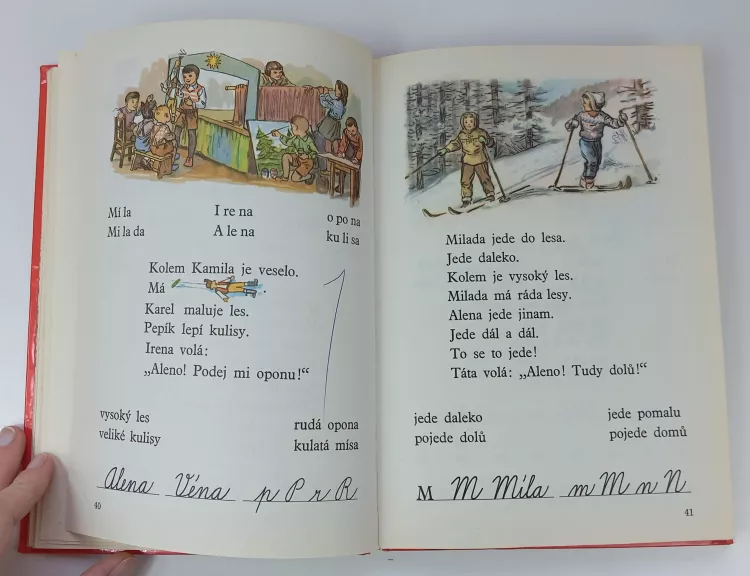 Mí la I re na o po na
Mi la da A le na ku li sa
Kolem Kamila je veselo.
Má
Karel maluje les.
Pepík lepí kulisy.
Irena volá:
„Aleno! Podej mi oponu!“
vysoký les rudá opona
veliké kulisy kulatá mísa
Alena Véna p P r R
40
Milada jede do lesa.
Jede daleko.
Kolem je vysoký les.
Milada má ráda lesy.
Alena jede jinam.
Jede dál a dál.
To se to jede!
Táta volá: „Aleno! Tudy dolů!“
jede daleko jede pomalu
pojede dolů pojede domů
M M Míla m M n N
41